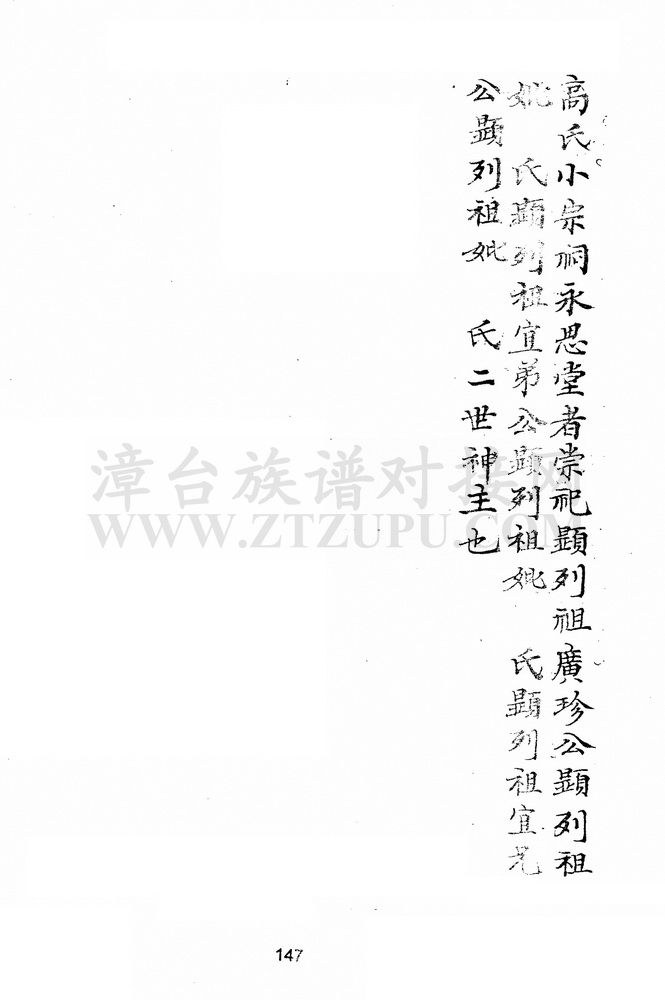 高氏小宗祠永思堂者崇祀顯列祖廣珍公顯列祖
妣 氏顯列祖宜弟公顯列祖妣 氏顯列祖宜
公顯列祖妣 氏二世神主也
漳台族谱对接网
WWW.ZTZUPU.COM
147